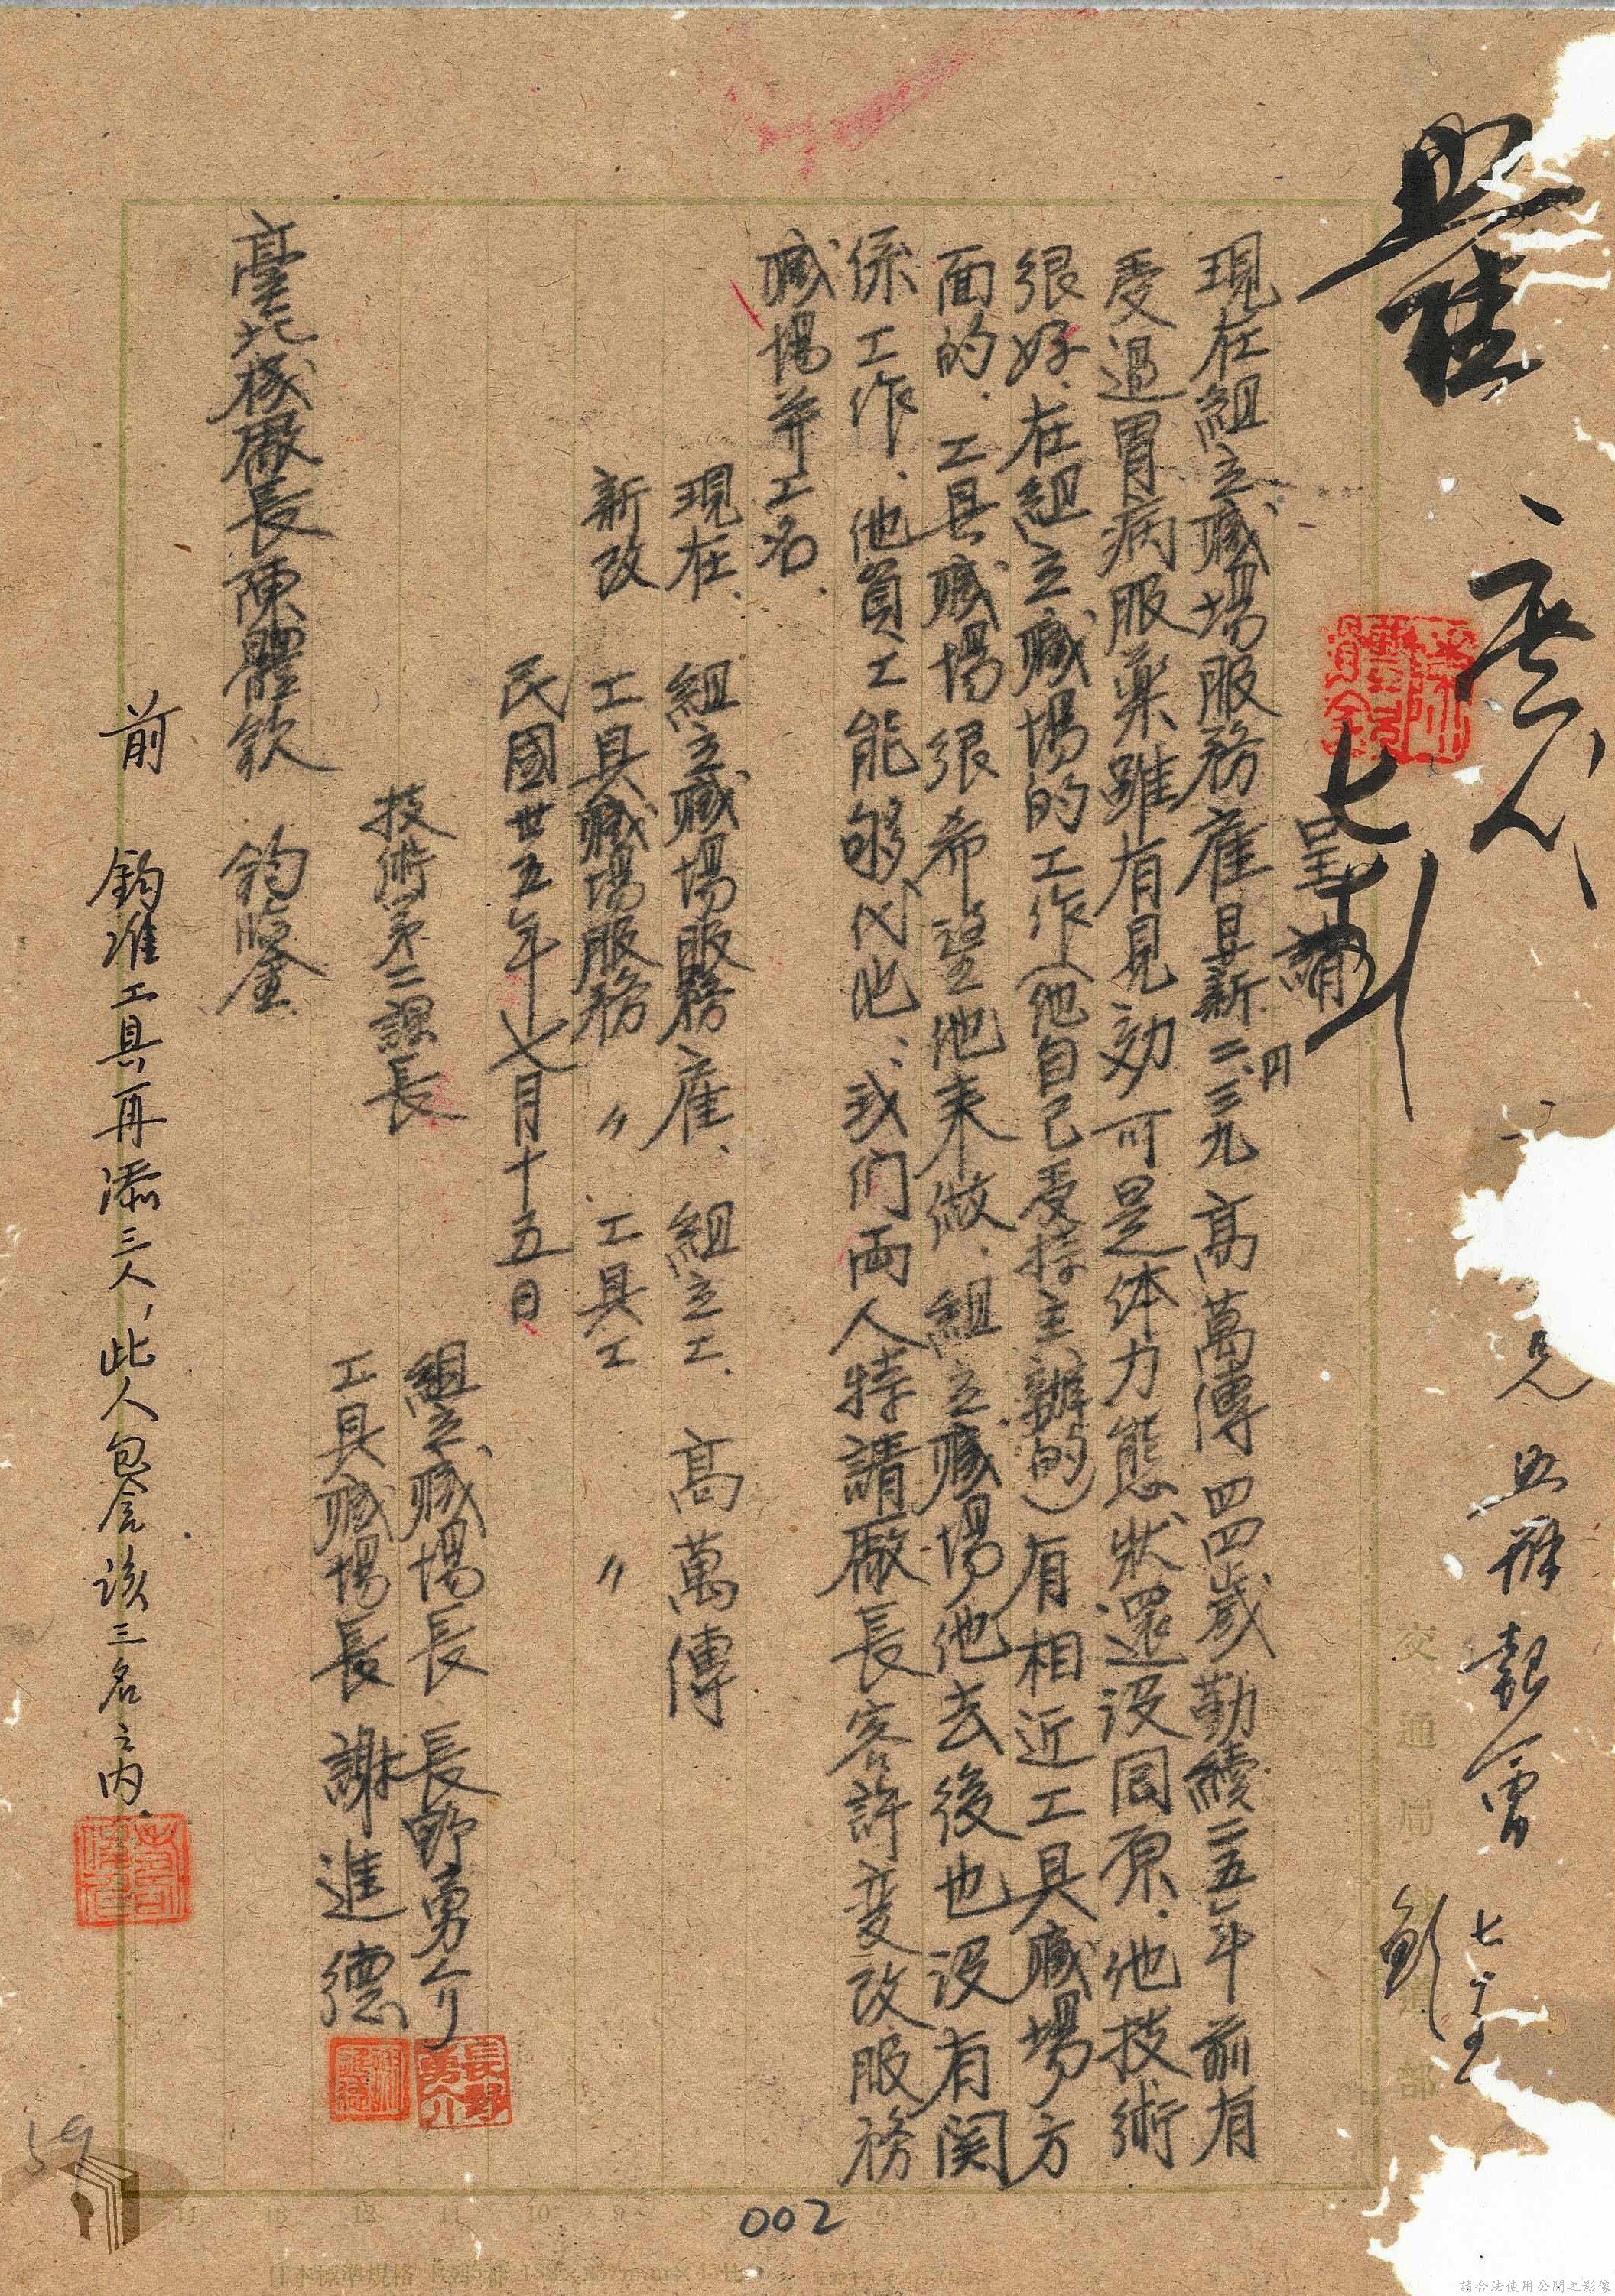 呈請
現在組立職場服務雇 昙薪二.三九円 高萬傳 四四歲 勤續二五年 前有
受過胃病服藥雖有見効可是体力態状還没囘原、他技術
很好、在組立職場的工作(他自己受持主辦的)有相近工具職場方
面的、工具職場很希望他来做、組立職場他去後也没有関
係工作、他員工能够代他、我们両人特請廠長容許変改服務
職場並工名、
現在、 組立職場服務 雇、 組立工、 高萬傳
新改 工具職場服務 〃 、 工具工 〃
民國卅五年七月十五日
組立職場長 長野勇介
長野勇介
工具職場長 謝進德
技術第二課長
臺北機廠長陳體欽 鈞鑒
前 鈞准工具再添三人,此人包含該三名之内.
交通局鐵道部
002
59
請合法使用公開之影像